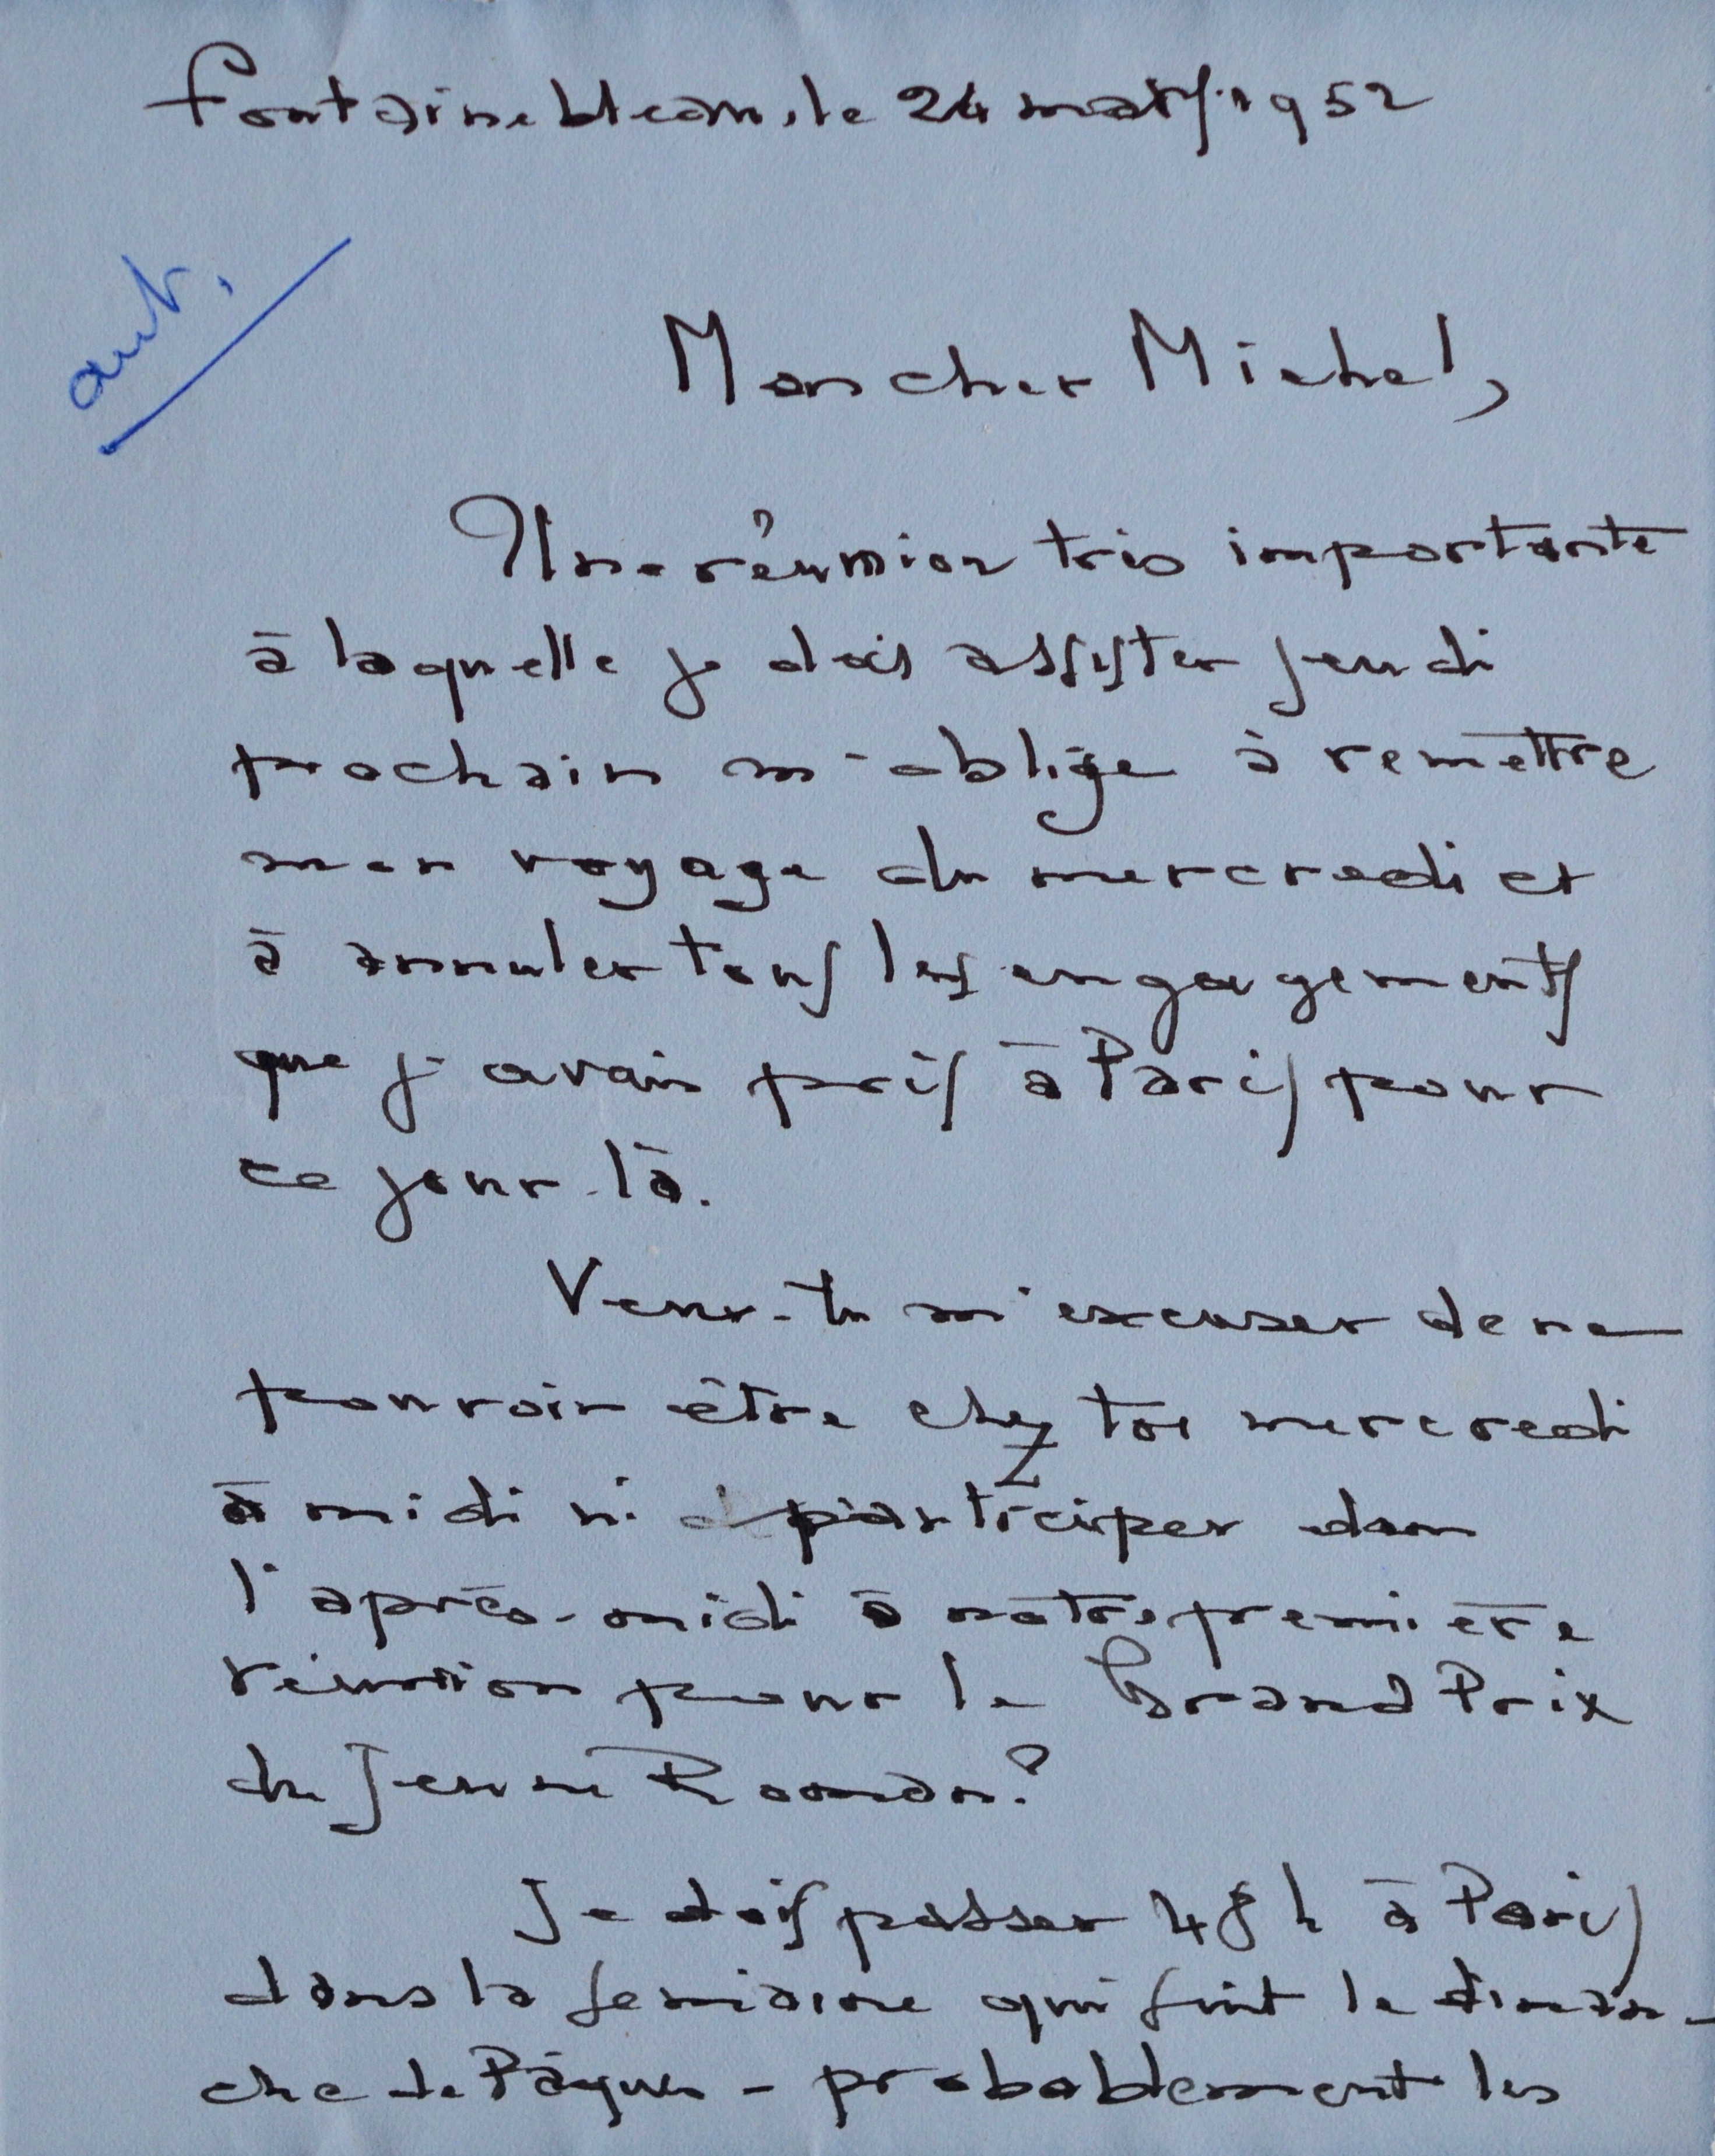 Fontainebleau, le 24 mars 1952
aut.
Mon cher Michel,
Une réunion très importante
à laquelle je dois assister jeudi
prochain m'oblige à remettre
mon voyage du mercredi et
à annuler tous les engagements
que j'avais pris à Paris pour
ce jour-là.
Veux-tu m'excuser de ne
pouvoir être chez toi mercredi
à midi ni participer dans
l'après-midi à notre première
réunion pour le Grand Prix
du Jeune Roman?
Je dois passer 48 h à Paris
dans la semaine qui suit le diman-
che de Pâques - probablement les